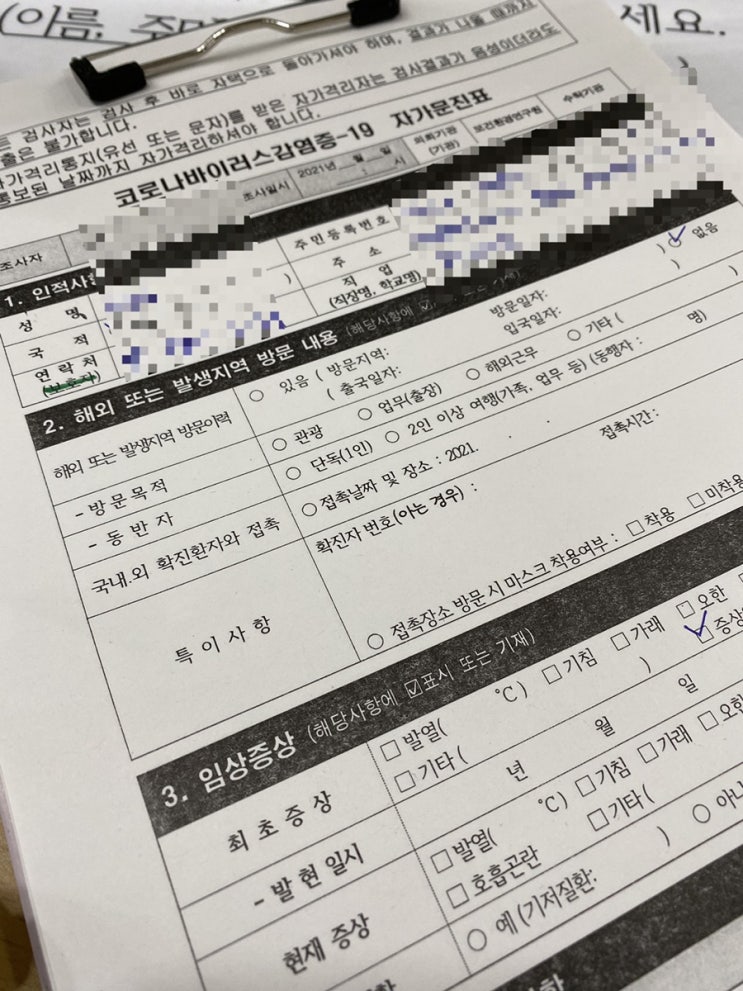 (이름, 주민
세요.
는 검사자는 검사 후 바로 자택으로 돌아가셔야 하며, 결과가 나올 때까지
출은 불가합니다.
자가격리통지(유선 또는 문자)를 받은 자가격리자는 검사결과가 음성이더라도
통보된 날짜까지 자가격리하셔야 합니다.
코로나바이러스감염증-19 자가문진표
조사자
조사일시
2021년 월 일
: 시
의뢰기관
(기관)
보건환경연구원
수탁기관
1. 인적사항
성 명
주민등록번호
국 적
)
주 소
연락처
(보호자)
직 업
(직장명, 학교명)
2. 해외 또는 발생지역 방문 내용 (해당사항에 ☑,
해외 또는 발생지역 방문이력
○ 있음 ( 방문지역: 방문일자: ) ○ 없음
( 출국일자: 입국일자: )
- 방문목적
○ 관광 ○ 업무(출장) ○ 해외근무 ○ 기타 ( )
- 동 반 자
○ 단독(1인) ○ 2인 이상 여행(가족, 업무 등) (동행자 : 명)
국내.외 확진환자와 접촉
○ 접촉날짜 및 장소 : 2021. . . 접촉시간:
확진자 번호(아는 경우) :
특 이 사 항
○ 접촉장소 방문 시 마스크 착용여부 : □ 착용 □ 미착용
3. 임상증상 (해당사항에 ☑표시 또는 기재)
최 초 증 상
□ 발열( ℃) □ 기침 □ 가래 □ 오한
□ 기타 ( ) ☑ 증상
- 발 현 일 시
년 월 일
현재 증상
□ 발열( ℃) □ 기침 □ 가래 □ 오한
□ 호흡곤란 □ 기타(
○ 예 (기저질환: ) ○ 아니